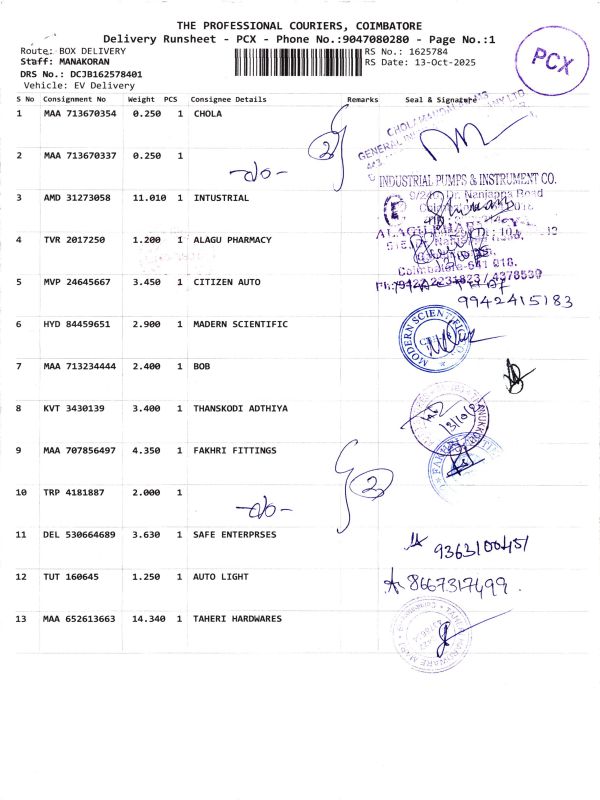 THE PROFESSIONAL COURIERS, COIMBATORE
Delivery Runsheet - PCX - Phone No.:9047080280 - Page No.:1
Route: BOX DELIVERY
RS No.: 1625784
Staff: MANAKORAN
RS Date: 13-Oct-2025
DRS No.: DCJB162578401
Vehicle: EV Delivery
PCX
S No Consignment No Weight PCS Consignee Details Remarks Seal & Signature
1 MAA 713670354 0.250 1 CHOLA
CHOLAMANDALAM MS
GENERAL INSURANCE COMPANY LTD
2
2 MAA 713670337 0.250 1
-do-
3 AMD 31273058 11.010 1 INTUSTRIAL
INDUSTRIAL PUMPS & INSTRUMENT CO.
9/24, Dr. Nanjappa Road
4 TVR 2017250 1.200 1 ALAGU PHARMACY
ALAGU PHARMACY
Coimbatore-641 018.
5 MVP 24645667 3.450 1 CITIZEN AUTO
9942415183
6 HYD 84459651 2.900 1 MADERN SCIENTIFIC
MODERN SCIENTIFIC
7 MAA 713234444 2.400 1 BOB
8 KVT 3430139 3.400 1 THANSKODI ADTHIYA
13/10/25
9 MAA 707856497 4.350 1 FAKHRI FITTINGS
2
10 TRP 4181887 2.000 1
-do-
11 DEL 530664689 3.630 1 SAFE ENTERPRSES
9363100451
12 TUT 160645 1.250 1 AUTO LIGHT
8667317499.
13 MAA 652613663 14.340 1 TAHERI HARDWARES